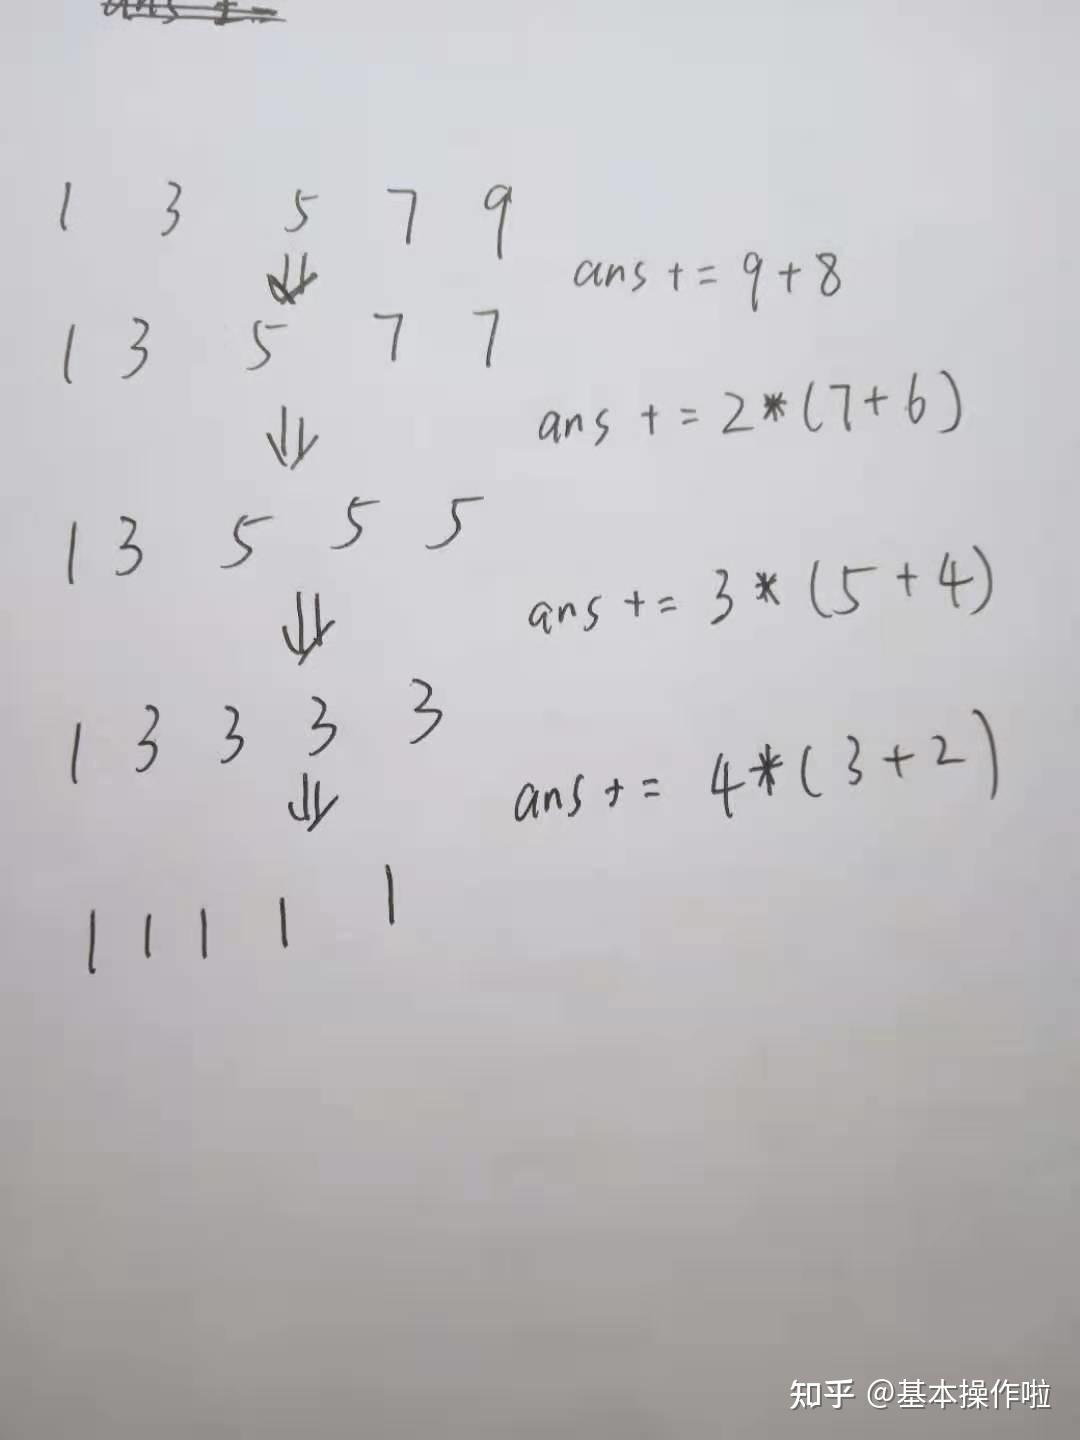 ans +=
1 3 5 7 9
ans += 9+8
1 3 5 7 7
ans += 2*(7+6)
1 3 5 5 5
ans += 3*(5+4)
1 3 3 3 3
ans += 4*(3+2)
1 1 1 1 1
知乎 @基本操作啦